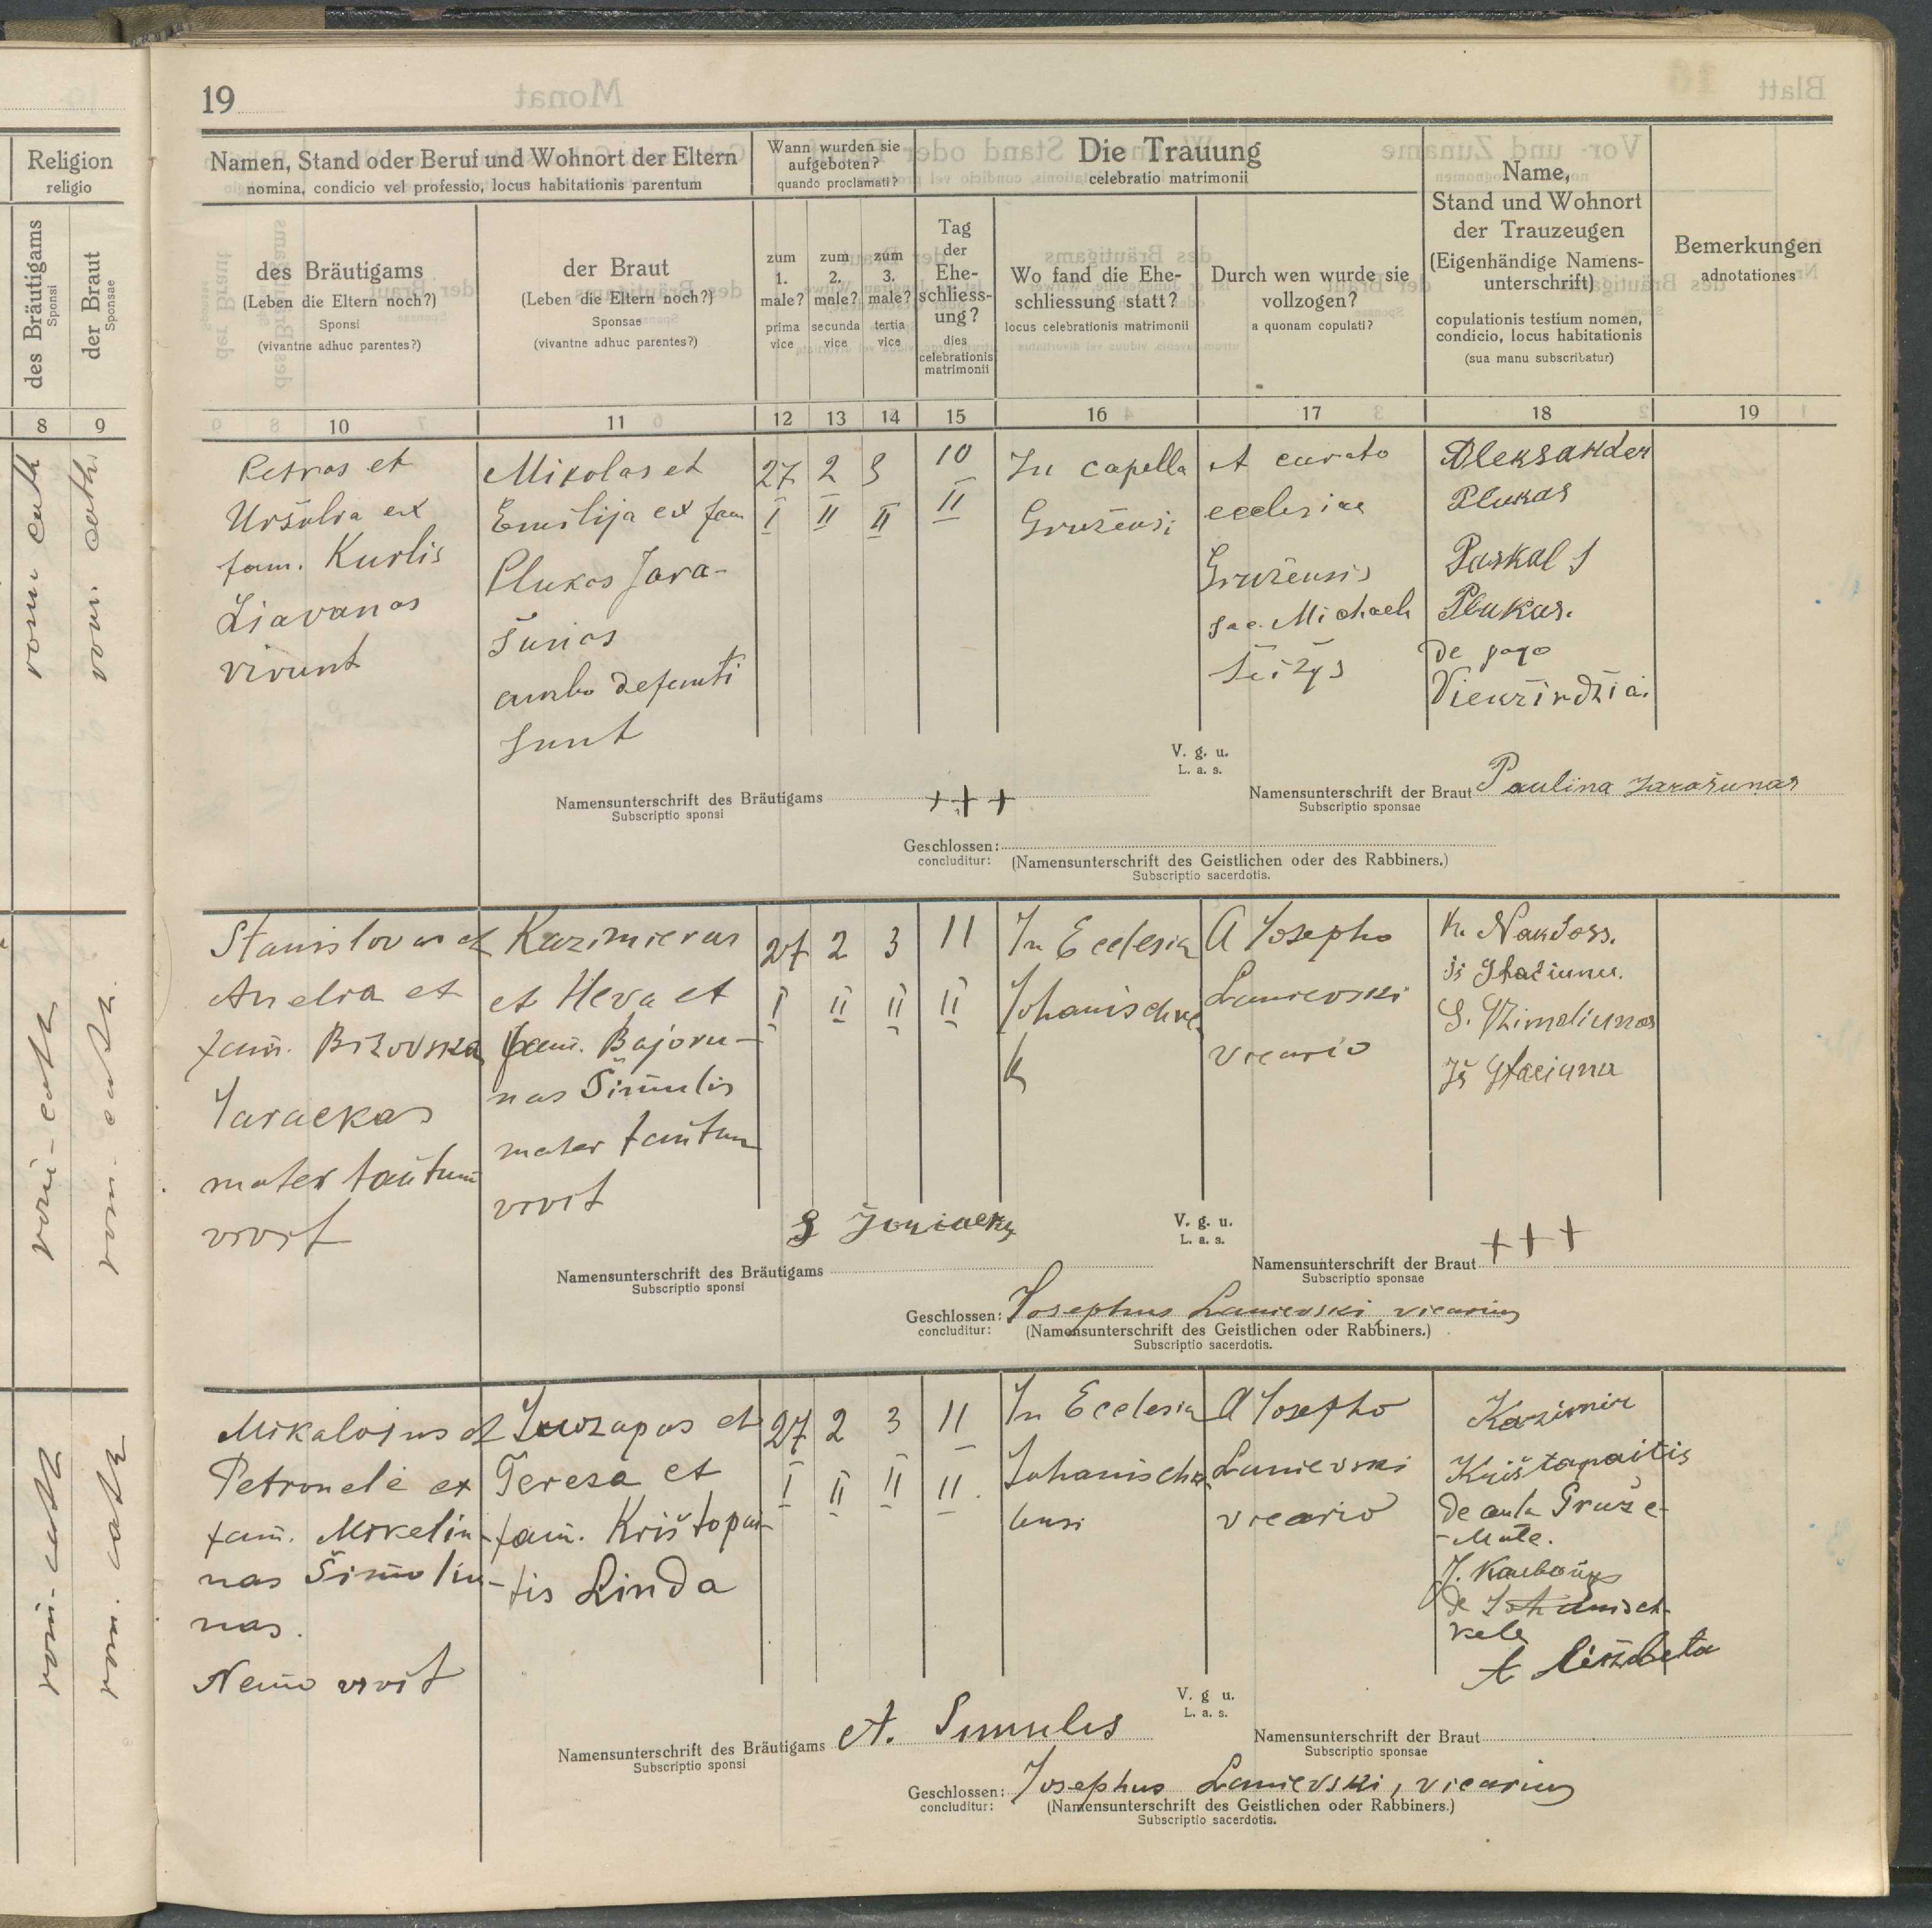 19
Religion
religio
des Bräutigams
Sponsi
der Braut
Sponsae
8
9
Namen, Stand oder Beruf und Wohnort der Eltern
nomina, condicio vel professio, locus habitationis parentum
des Bräutigams
(Leben die Eltern noch?)
Sponsi
(vivantne adhuc parentes?)
der Braut
(Leben die Eltern noch?)
Sponsae
(vivantne adhuc parentes?)
Wann wurden sie
aufgeboten?
quando proclamati?
zum
1.
male?
prima
vice
zum
2.
male?
secunda
vice
zum
3.
male?
tertia
vice
Die Trauung
celebratio matrimonii
Tag
der
Ehe-
schliess-
ung?
dies
celebrationis
matrimonii
Wo fand die Ehe-
schliessung statt?
locus celebrationis matrimonii
Durch wen wurde sie
vollzogen?
a quonam copulati?
Name,
Stand und Wohnort
der Trauzeugen
(Eigenhändige Namens-
unterschrift)
copulationis testium nomen,
condicio, locus habitationis
(sua manu subscribatur)
Bemerkungen
adnotationes
10
11
12
13
14
15
16
17
18
19
rom. cath
rom. cath.
Petras et
Uršulia ex
fam. Kurlis
Liavanas
vivunt
Mikolas et
Emilija ex fam
Plukas Jara-
šunas
ambo defuncti
sunt
27 2 3
I II II
10
II
In capella
Gružensi
A curato
ecclesiae
Gružensis
sac. Michaele
Šeižys
Aleksander
Plukas
Paskal
Plukas.
De pago
V. g. u.
L. a. s.
Namensunterschrift des Bräutigams +++
Subscriptio sponsi
Namensunterschrift der Braut Paulina Jarašunas
Subscriptio sponsae
Geschlossen:
concluditur:
(Namensunterschrift des Geistlichen oder des Rabbiners.)
Subscriptio sacerdotis.
rom. cath
rom. cath.
Stanislovas et
Anelia et
fam. Bizovska
Jarackas
mater tantum
vivit
Kazimieras
et Heva et
fam. Bajoru-
nas Šimulis
mater tantum
vivit
27 2 3
I II II
11
II
In Ecclesia
A Josepho
Lanievski
vicario
V. g. u.
L. a. s.
Namensunterschrift des Bräutigams
Subscriptio sponsi
Namensunterschrift der Braut +++
Subscriptio sponsae
Geschlossen: Josephus Lanievski, vicarius
concluditur:
(Namensunterschrift des Geistlichen oder Rabbiners.)
Subscriptio sacerdotis.
rom. cath
rom. cath
Mikalojus et
Petronelė ex
fam. Mikeliu-
nas Šimoliu-
nas.
Nemo vivit
Juozapas et
Teresa et
fam. Krištopai-
tis Linda
27 2 3
I II II
11
II.
In Ecclesia
Johanischke-
lensi
A Josepho
Lanievski
vicario
Kazimir
Krištapaitis
de aula Gruže-
V. g u.
L. a. s.
Namensunterschrift des Bräutigams A. Simulis
Subscriptio sponsi
Namensunterschrift der Braut
Subscriptio sponsae
Geschlossen: Josephus Lanievski, vicarius
concluditur:
(Namensunterschrift des Geistlichen oder Rabbiners.)
Subscriptio sacerdotis.